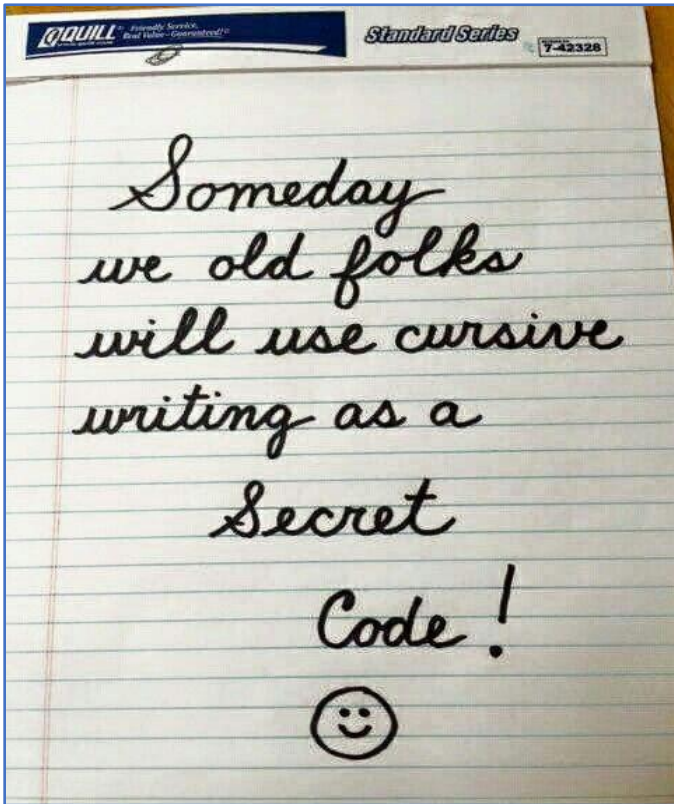 QUILL Friendly Service,
Real Value–Guaranteed!
Standard Series
7-42328
Someday
we old folks
will use cursive
writing as a
Secret
Code!